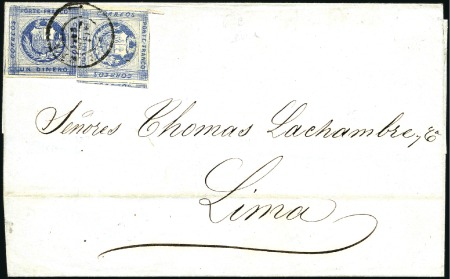 PORTE FRANCO
CORREOS
UN DINERO
CORREOS
PORTE FRANCO
CORREOS
Señores Thomas Lachambre, y Cª
Lima